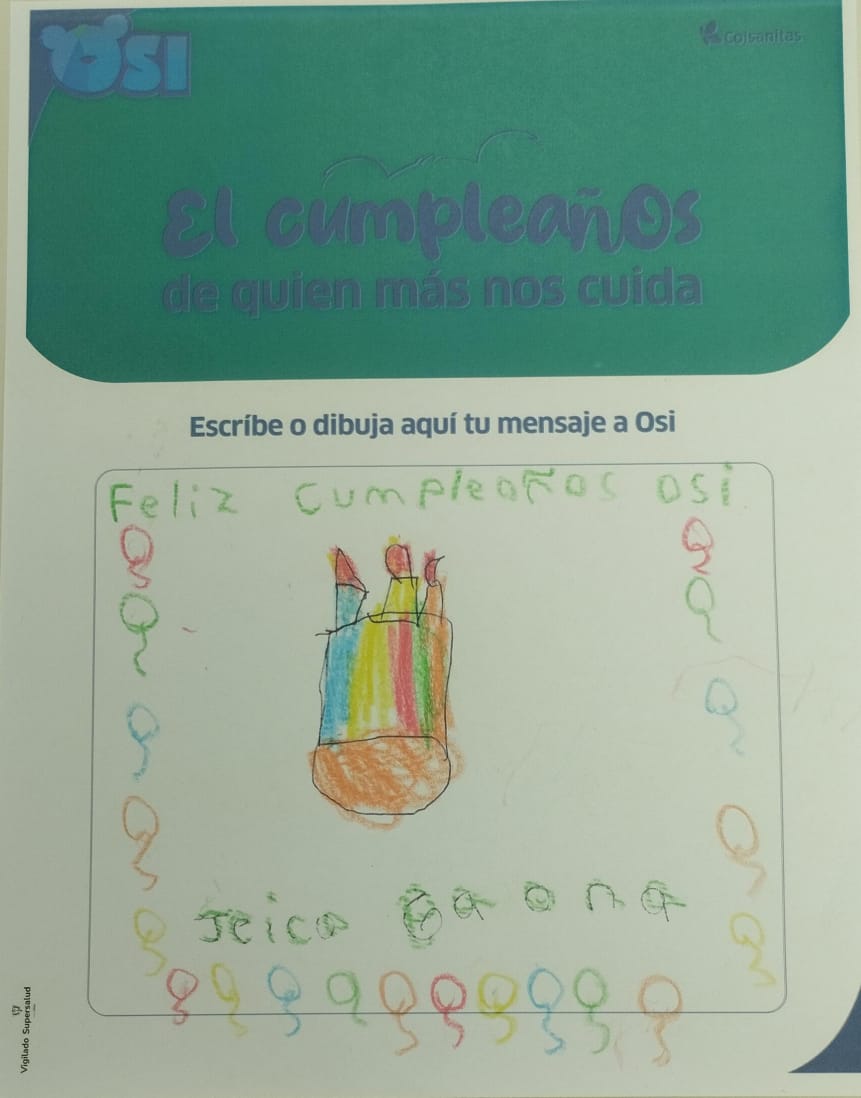 Osi
Colsanitas
El cumpleaños
de quien más nos cuida
Escríbe o dibuja aquí tu mensaje a Osi
Feliz cumpleaños osi
Jeico Gaona
Vigilado Supersalud